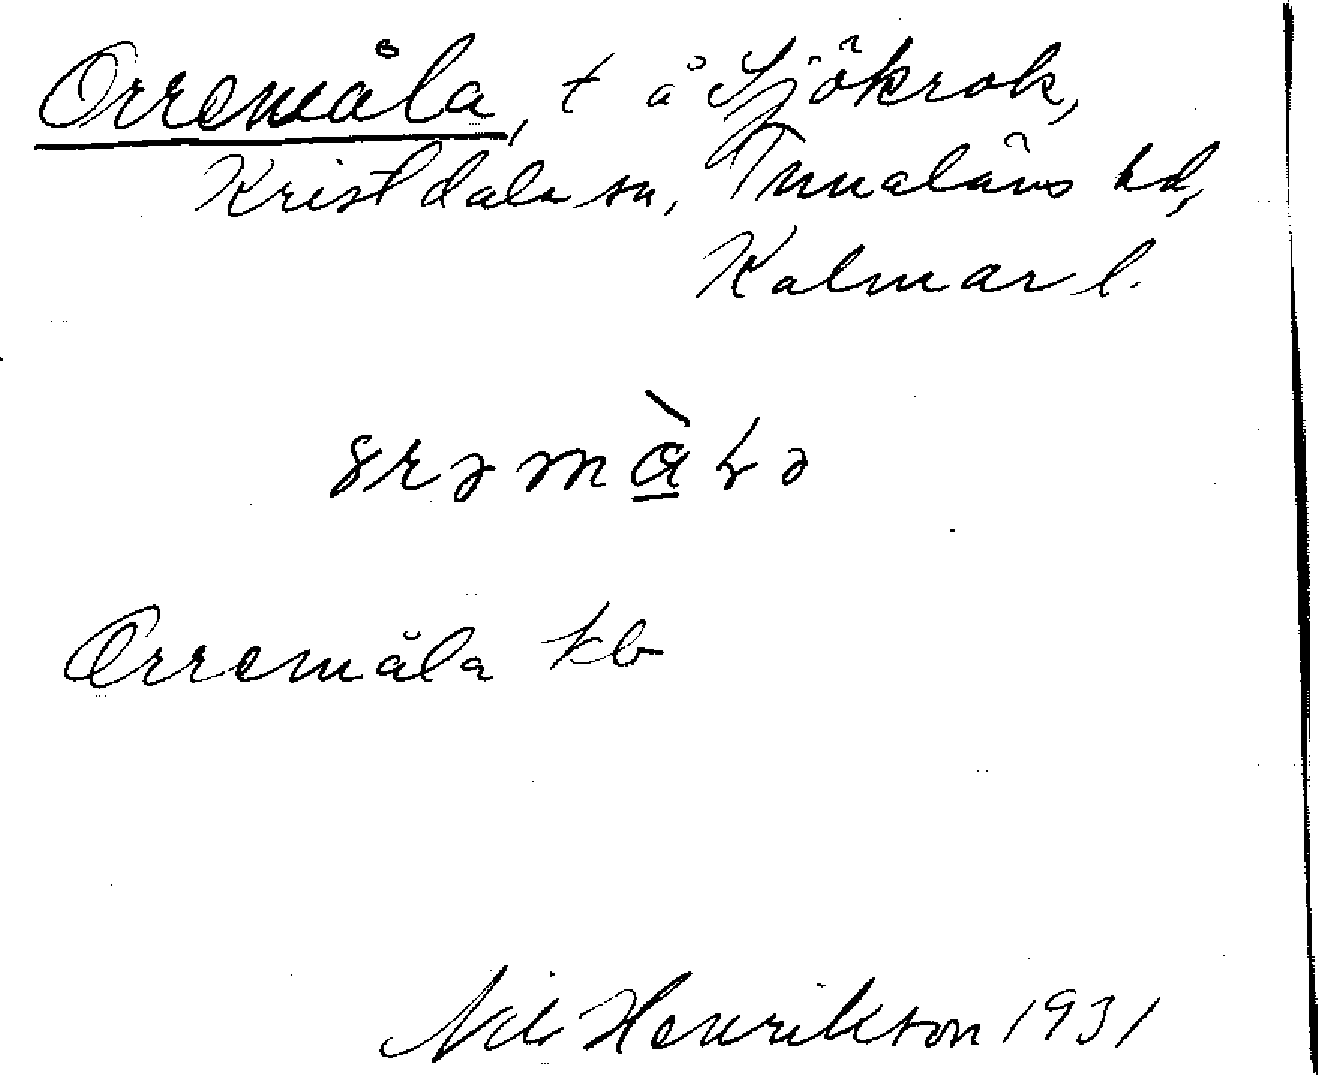 Orremåla, t å Sjökrok,
Kristdala sn, Tunaläns hd,
Kalmar l.
Orremåla kb
Nils Henrikson 1931